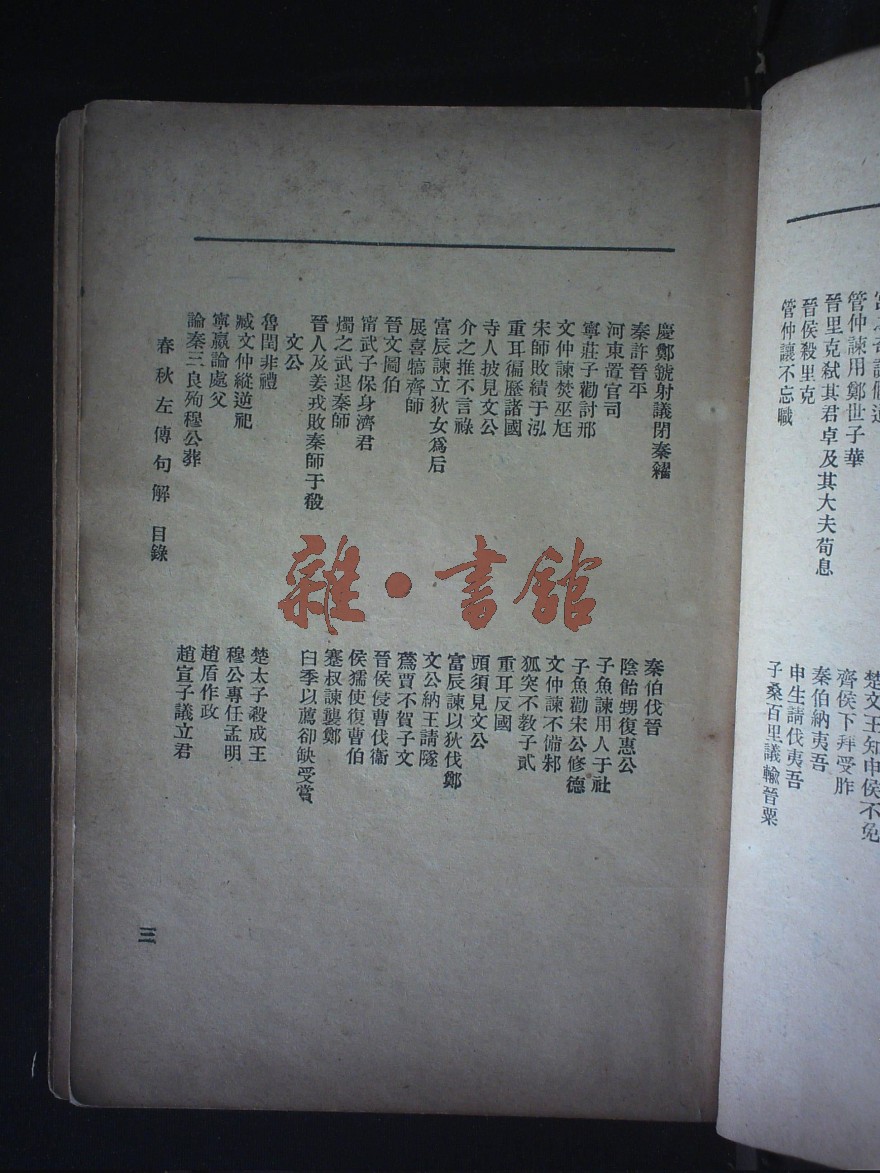 管仲諫用鄭世子華
楚文王知申侯不免
晉里克弒其君卓及其大夫荀息
齊侯下拜受胙
晉侯殺里克
秦伯納夷吾
管仲讓不忘職
申生請伐夷吾
子桑百里議輸晉粟
慶鄭虢射議閉秦糴
秦伯伐晉
秦許晉平
陰飴甥復惠公
河東置官司
子魚諫用人于社
寧莊子勸討邢
子魚勸宋公修德
文仲諫焚巫尪
文仲諫不備邾
宋師敗績于泓
狐突不教子貳
重耳徧歷諸國
重耳反國
寺人披見文公
頭須見文公
介之推不言祿
富辰諫以狄伐鄭
富辰諫立狄女爲后
文公納王請隧
展喜犒齊師
蒍賈不賀子文
晉文圖伯
晉侯侵曹伐衞
甯武子保身濟君
侯獳使復曹伯
燭之武退秦師
蹇叔諫襲鄭
晉人及姜戎敗秦師于殽
臼季以薦卻缺受賞
文公
魯閏非禮
楚太子殺成王
臧文仲縱逆祀
穆公專任孟明
寧嬴論處父
趙盾作政
論秦三良殉穆公葬
趙宣子議立君
春秋左傳句解 目錄
三
雜·書館